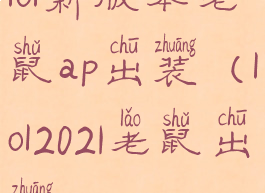 lol新版本老
shǔ chū zhuāng
鼠ap出装（l
lǎo shǔ chū
ol2021老鼠出
zhuāng